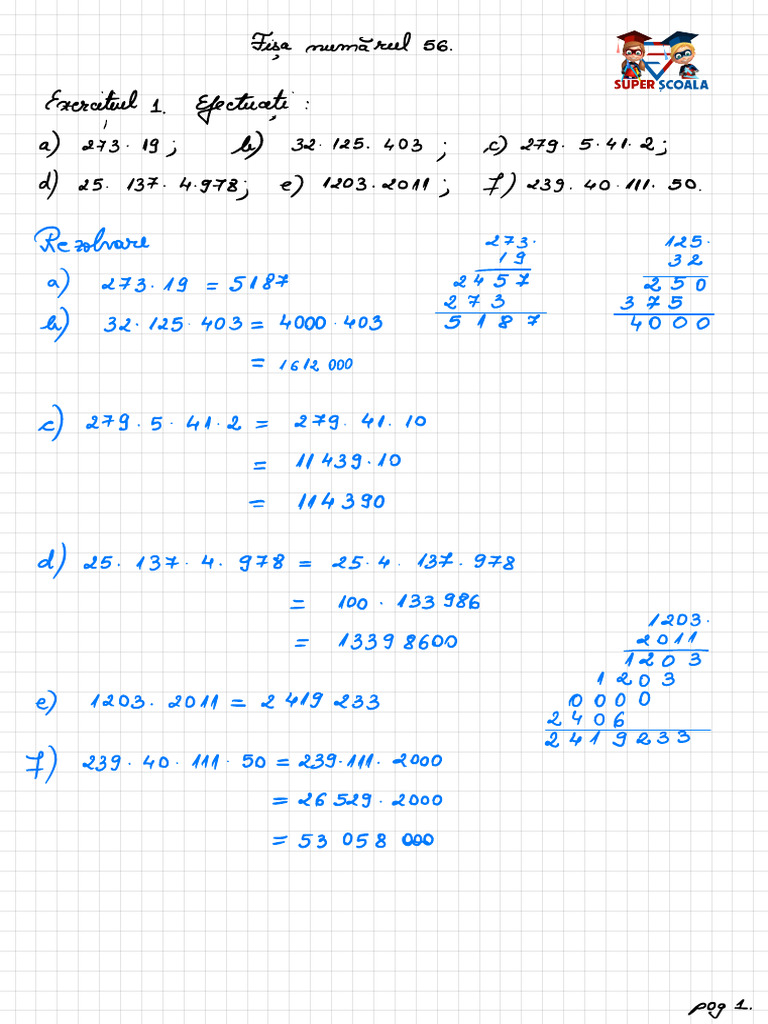 Fișa numărul 56.
SUPER ȘCOALA
Exercițiul 1. Efectuați :
a) 273 · 19 ; b) 32 · 125 · 403 ; c) 279 · 5 · 41 · 2 ;
d) 25 · 137 · 4 · 978 ; e) 1203 · 2011 ; f) 239 · 40 · 111 · 50.
Rezolvare
a) 273 · 19 = 5187
b) 32 · 125 · 403 = 4000 · 403
= 1612 000
273 ·
19
2457
273
5187
125 ·
32
250
375
4000
c) 279 · 5 · 41 · 2 = 279 · 41 · 10
= 11 439 · 10
= 114390
d) 25 · 137 · 4 · 978 = 25 · 4 · 137 · 978
= 100 · 133 986
= 1339 8600
e) 1203 · 2011 = 2 419 233
1203 ·
2011
1203
1203
0000
2406
2419233
f) 239 · 40 · 111 · 50 = 239 · 111 · 2000
= 26 529 · 2000
= 53 058 000
pag 1.